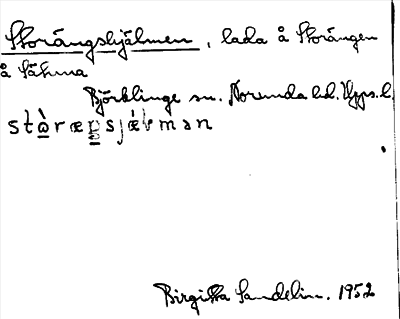 Storängshjälmen, lada å Storängen
å Sätuna
Björklinge sn. Norunda hd. Upps. l.
Birgitta Sandelin. 1952